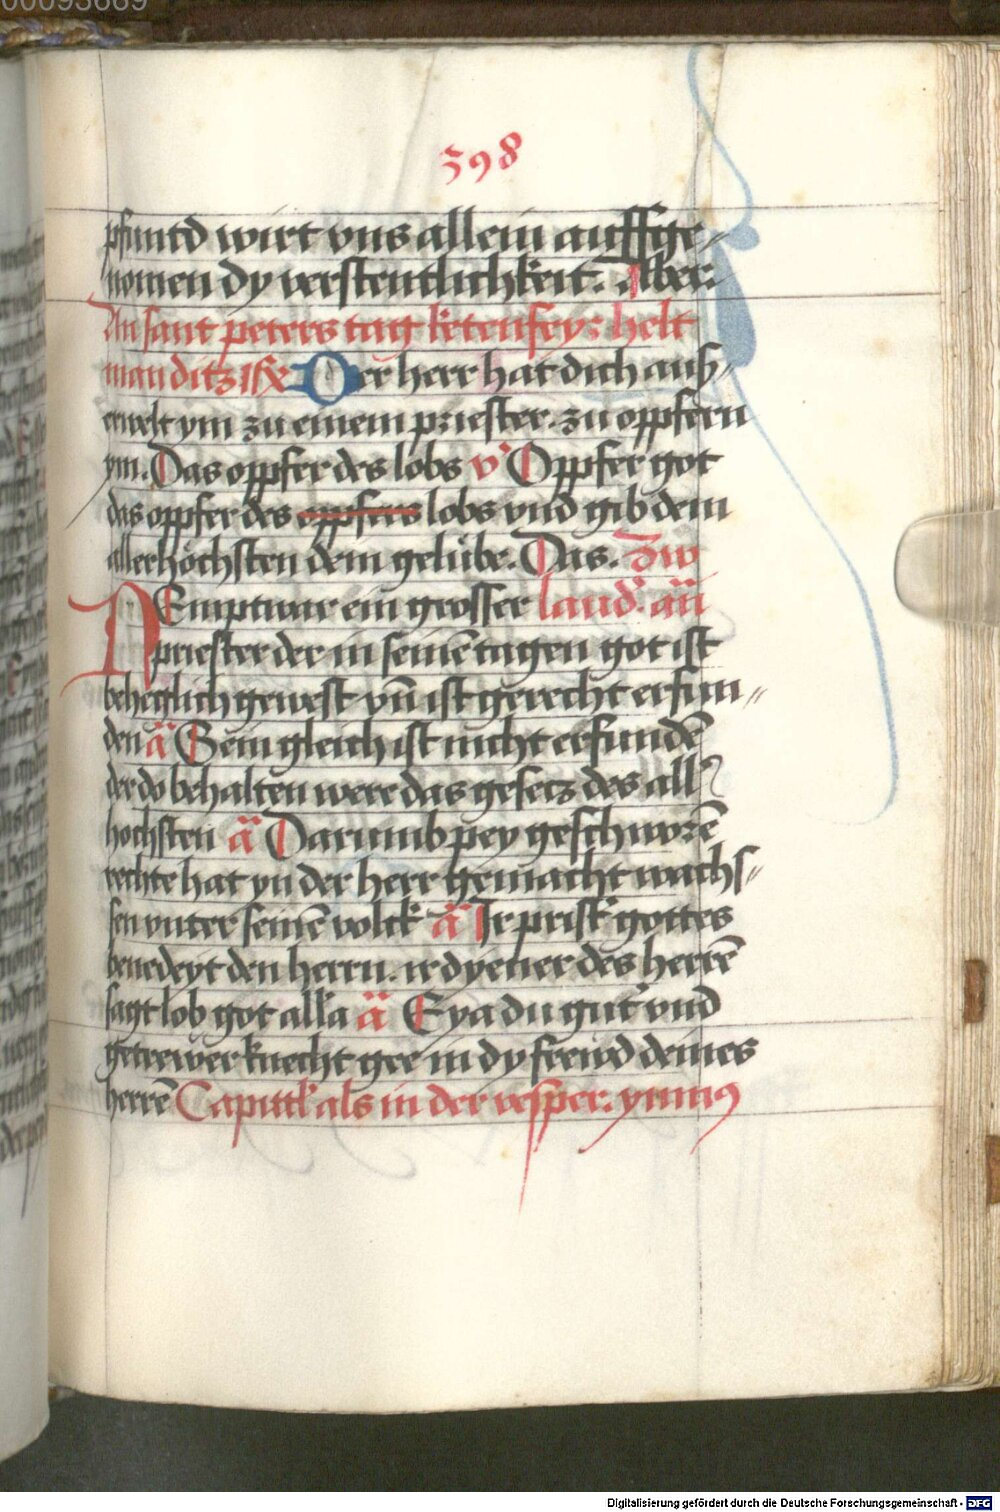 00093669
398
pfuntd wirt vns allein auffge-
nomen dy verstentlichkeit. Aber
An sant peters tag ketenfeyr helt
man ditz Der herr hat dich auß-
erwelt ym zu einem priester. zu oppfern
ym. Das oppfer des lobs v' Oppfer got
das oppfer des oppfers lobs vnd gib dem
allerhöchsten dem gelübe. Das. Zw
NEmpt war ein grosser laud' an̄
priester der in seinē tagen got ist
beheglich gewest vn̄ ist gerecht erfun-
den ā Sein gleich ist nicht erfundē
der do behalten were das gesetz des all'
hochsten ā Darumb pey geschworē
rechte hat yn der herr gemacht wachs-
sen vnter seinē volck ā Ir prist' gottes
benedeyt den herrn. ir dyener des herrē
sagt lob got alla ā Eya du gut' vnd
getrewer knecht gee in dy frewd deines
herrē Capittl' als in der vesper. ymnus
Digitalisierung gefördert durch die Deutsche Forschungsgemeinschaft - DFG